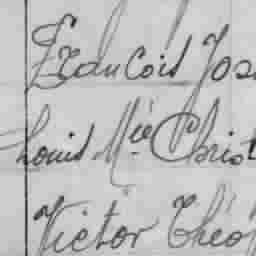 François Jos
Louis Mie Christ
Victor Théop